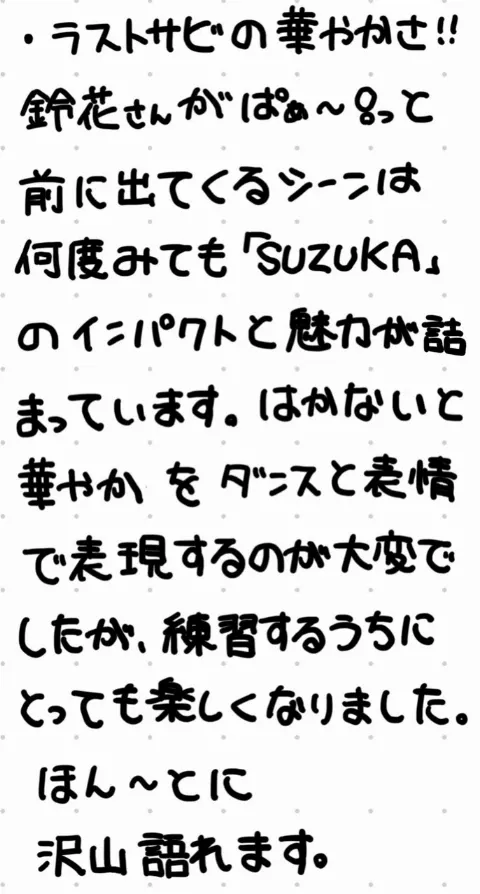 ・ラストサビの華やかさ!!
鈴花さんがぱぁ〜っと
前に出てくるシーンは
何度みても「SUZUKA」
のインパクトと魅力が詰
まっています。はかないと
華やか、をダンスと表情
で表現するのが大変で
したが、練習するうちに
とっても楽しくなりました。
ほん〜とに
沢山語れます。